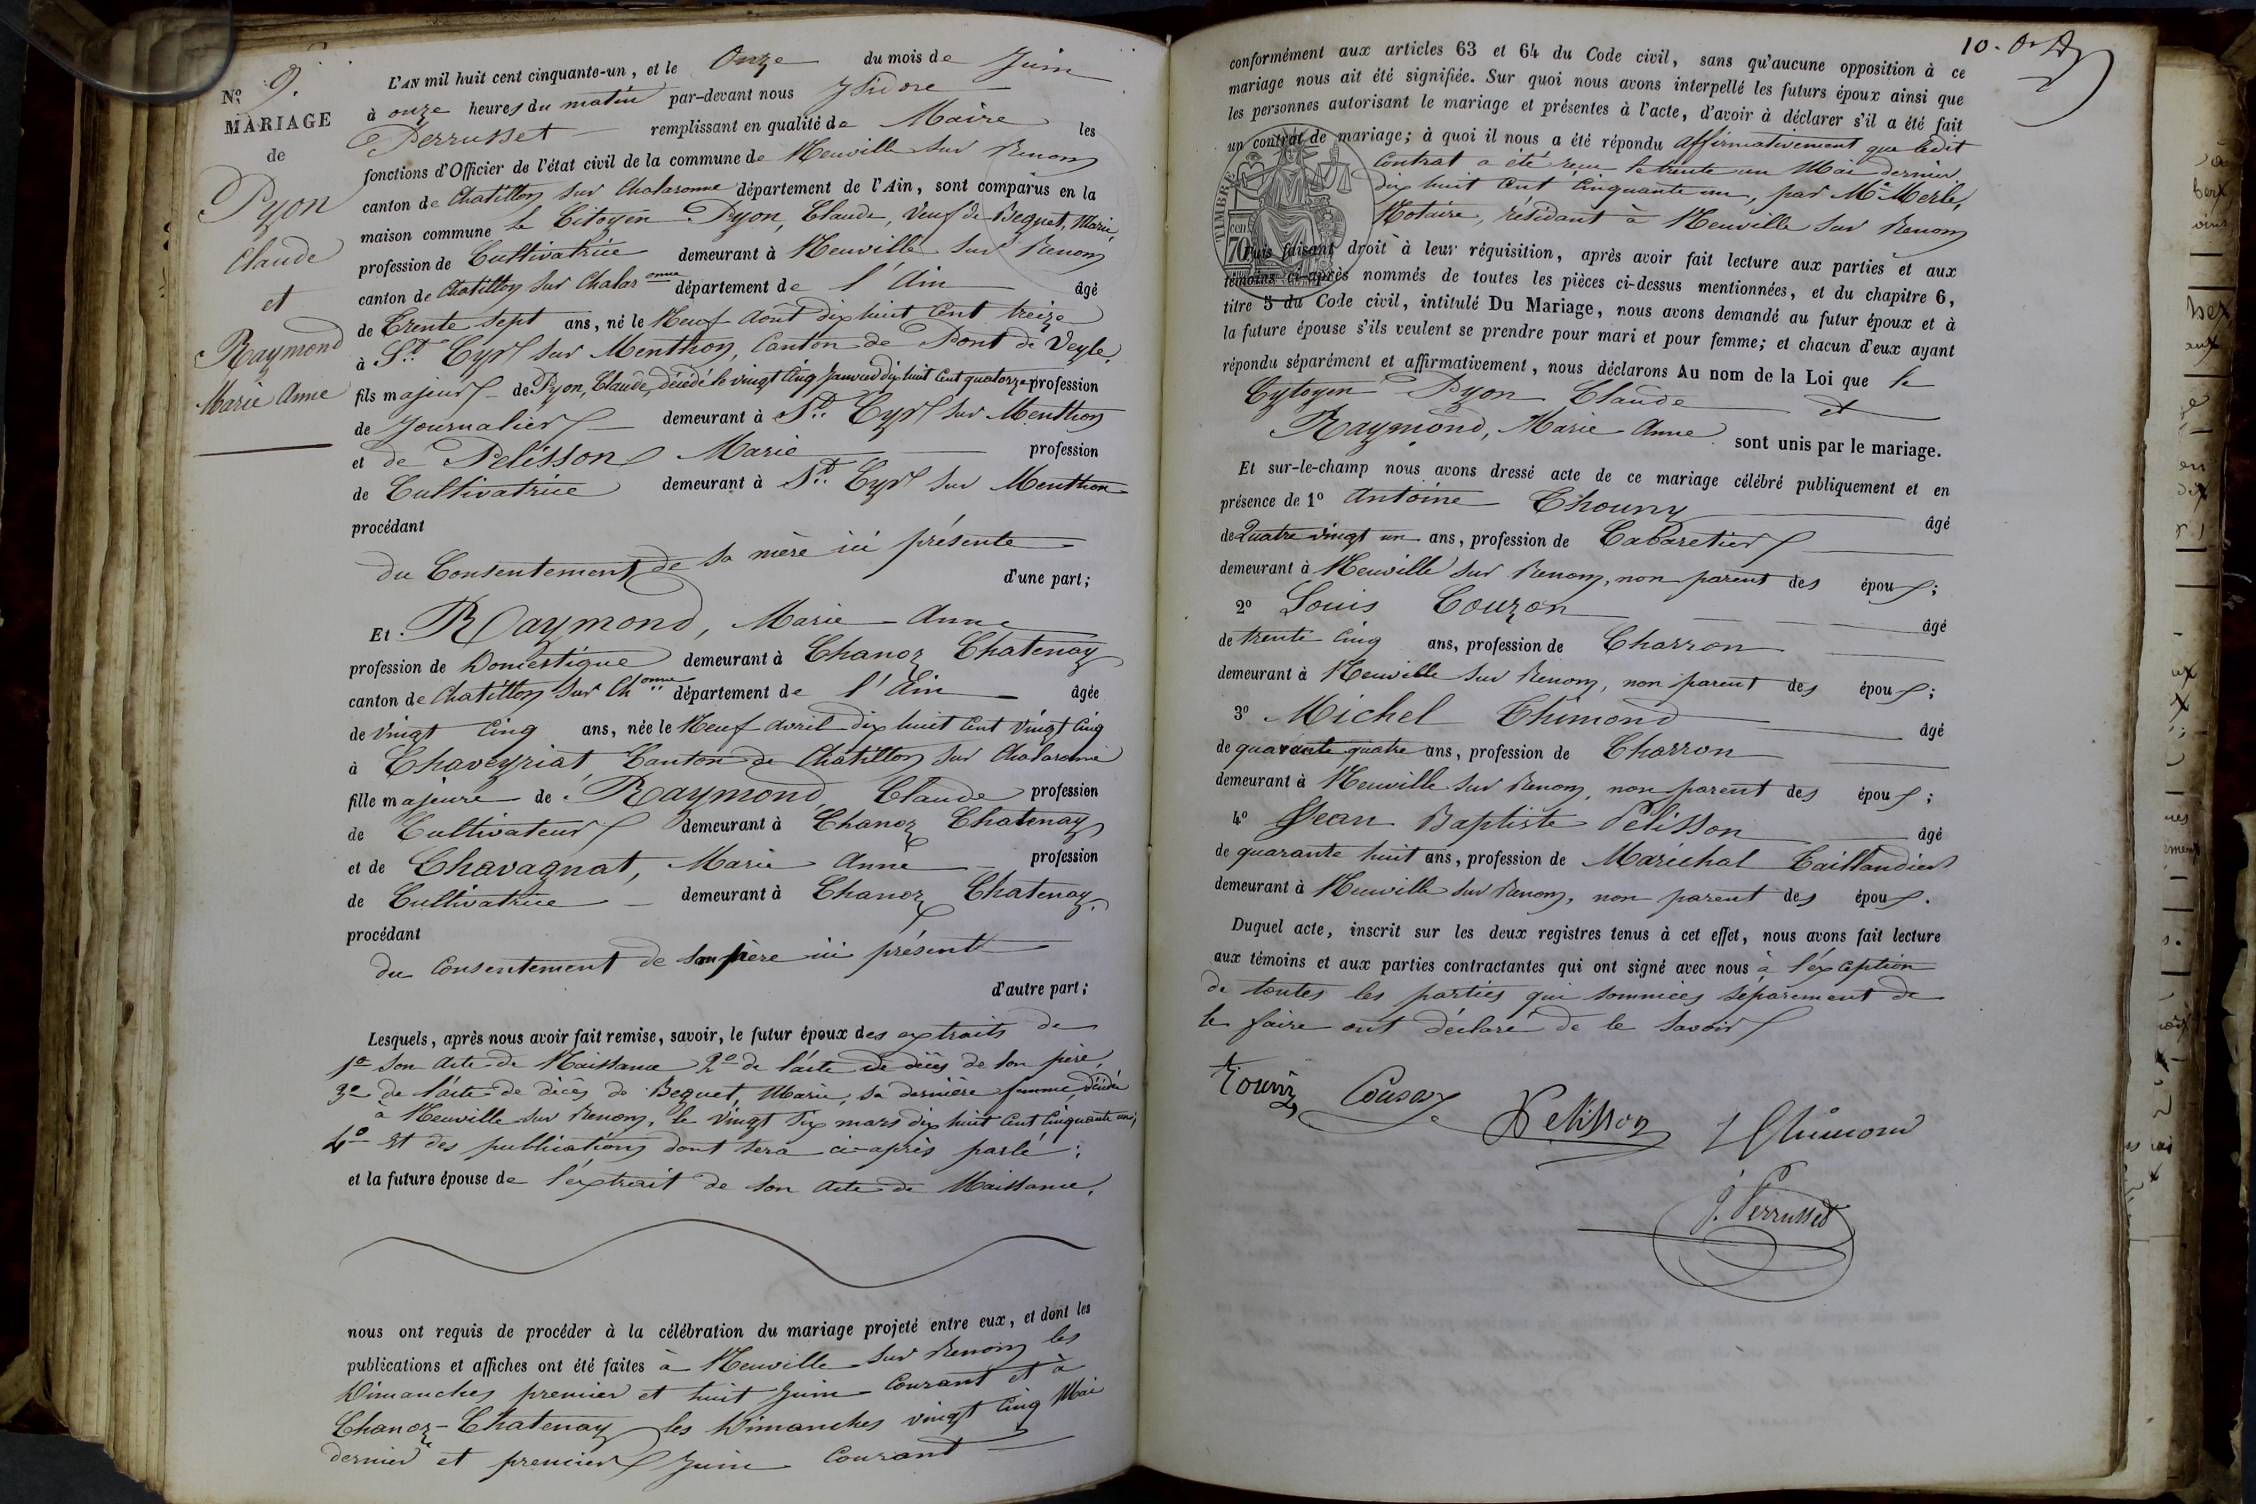 N.º 9.
MARIAGE
de
Pyon
Claude
et
Raymond
Marie Anne
L'AN mil huit cent cinquante-un, et le Onze du mois de Juin
à onze heures du matin par-devant nous Ysidore
Perrusset remplissant en qualité de Maire les
fonctions d'Officier de l'état civil de la commune de Neuville sur Renom
canton de Chatillon sur Chalaronne département de l'Ain, sont comparus en la
maison commune le Citoyen Pyon, Claude, Veuf de Bequet, Marie,
profession de Cultivatrice demeurant à Neuville sur Renom
canton de Chatillon sur Chalaronne département de l'Ain âgé
de Trente sept ans, né le Neuf Août dix huit Cent treize
à St. Cyr sur Menthon, Canton de Pont de Veyle,
fils majeur de Pyon, Claude, décédé le vingt Cinq Janvier dix huit Cent quatorze profession
de Journalier demeurant à St. Cyr sur Menthon
et de Pelisson Marie profession
de Cultivatrice demeurant à St. Cyr sur Menthon
procédant
du Consentement de sa mère ici présente
d'une part;
Et Raymond, Marie Anne
profession de Domestique demeurant à Chanoz Chatenay
canton de Chatillon sur Ch.onne département de l'Ain âgée
de vingt Cinq ans, née le Neuf avril dix huit Cent Vingt Cinq
à Chaveyriat, Canton de Chatillon sur Chalaronne
fille majeure de Raymond, Claude profession
de Cultivateur demeurant à Chanoz Chatenay
et de Chavagnat, Marie Anne profession
de Cultivatrice demeurant à Chanoz Chatenay,
procédant
du Consentement de son père ici présent
d'autre part;
Lesquels, après nous avoir fait remise, savoir, le futur époux des extraits de
1º son Acte de Naissance 2º de l'acte de décès de son père,
3º de l'acte de décès de Bequet, Marie, sa dernière femme, décédée
à Neuville sur Renom, le vingt six mars dix huit Cent Cinquante un;
4º Et des publications dont sera ci-après parlé;
et la future épouse de l'extrait de son Acte de Naissance.
nous ont requis de procéder à la célébration du mariage projeté entre eux, et dont les
publications et affiches ont été faites à Neuville sur Renom les
Dimanches premier et huit Juin Courant et à
Chanoz-Chatenay les Dimanches vingt Cinq Mai
dernier et premier Juin Courant
10.
conformément aux articles 63 et 64 du Code civil, sans qu'aucune opposition à ce
mariage nous ait été signifiée. Sur quoi nous avons interpellé les futurs époux ainsi que
les personnes autorisant le mariage et présentes à l'acte, d'avoir à déclarer s'il a été fait
un contrat de mariage; à quoi il nous a été répondu affirmativement que ledit
Contrat a été reçu le trente un Mai dernier
dix huit Cent Cinquante un, par Me. Merle,
Notaire, résidant à Neuville sur Renom
TIMBRE
70 cen.
Puis faisant droit à leur réquisition, après avoir fait lecture aux parties et aux
témoins ci-après nommés de toutes les pièces ci-dessus mentionnées, et du chapitre 6,
titre 5 du Code civil, intitulé Du Mariage, nous avons demandé au futur époux et à
la future épouse s'ils veulent se prendre pour mari et pour femme; et chacun d'eux ayant
répondu séparément et affirmativement, nous déclarons Au nom de la Loi que le
Cytoyen Pyon Claude et
Raymond, Marie Anne sont unis par le mariage.
Et sur-le-champ nous avons dressé acte de ce mariage célébré publiquement et en
présence de 1º Antoine Thouny âgé
de Quatre vingt un ans, profession de Cabaretier
demeurant à Neuville sur Renom, non parent des époux;
2º Louis Couzon âgé
de trente Cinq ans, profession de Charron
demeurant à Neuville sur Renom, non parent des époux;
3º Michel Thimond âgé
de quarante quatre ans, profession de Charron
demeurant à Neuville sur Renom, non parent des époux;
4º Jean Baptiste Pelisson âgé
de quarante huit ans, profession de Maréchal Taillandier
demeurant à Neuville sur Renom, non parent des époux.
Duquel acte, inscrit sur les deux registres tenus à cet effet, nous avons fait lecture
aux témoins et aux parties contractantes qui ont signé avec nous à l'éxception
de toutes les parties qui sommées séparement de
le faire ont déclaré de le savoir
Pelisson Thimond
J. Perrusset